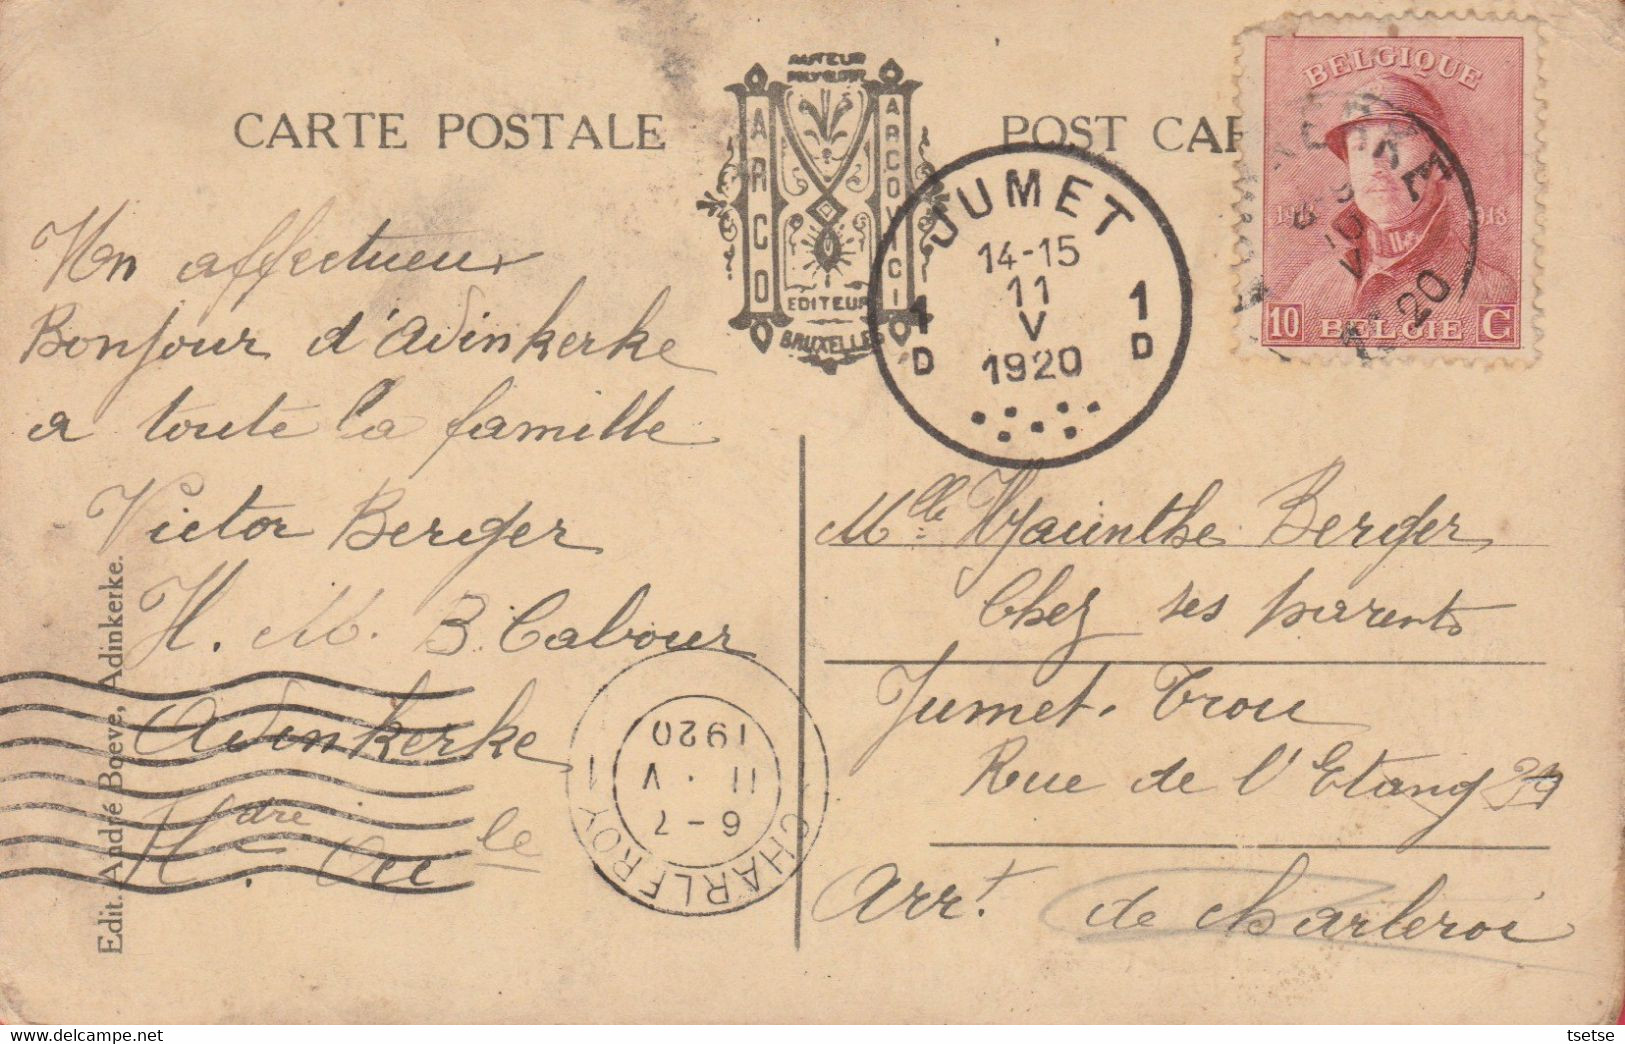 CARTE POSTALE
AUTEUR
ARCO
ARCOVICI
EDITEUR
BRUXELLES
POST CAR
JUMET
14-15
11
V
1920
1 D
1 D
BELGIQUE
1918
10 BELGIË C
20
Un affectueux
Bonjour d'Adinkerke
a toute la famille
Victor Berger
H. M. B. Cabour
Adinkerke
CHARLEROY 1
6-7
11.V
1920
Mlle Hyacinthe Berger
Chez ses parents
Jumet. Trou
Rue de l'Etang 29
Arrt. de Charleroi
Edit. André Boeve, Adinkerke.
tsetse